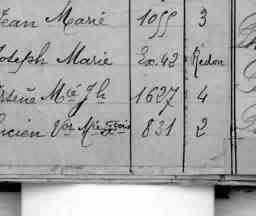 Jean Marie 1055 3
Joseph Marie Ex. 42 Redon
Arsène Mie Jh 1627 4
Lucien Vor Mie Fçois 831 2